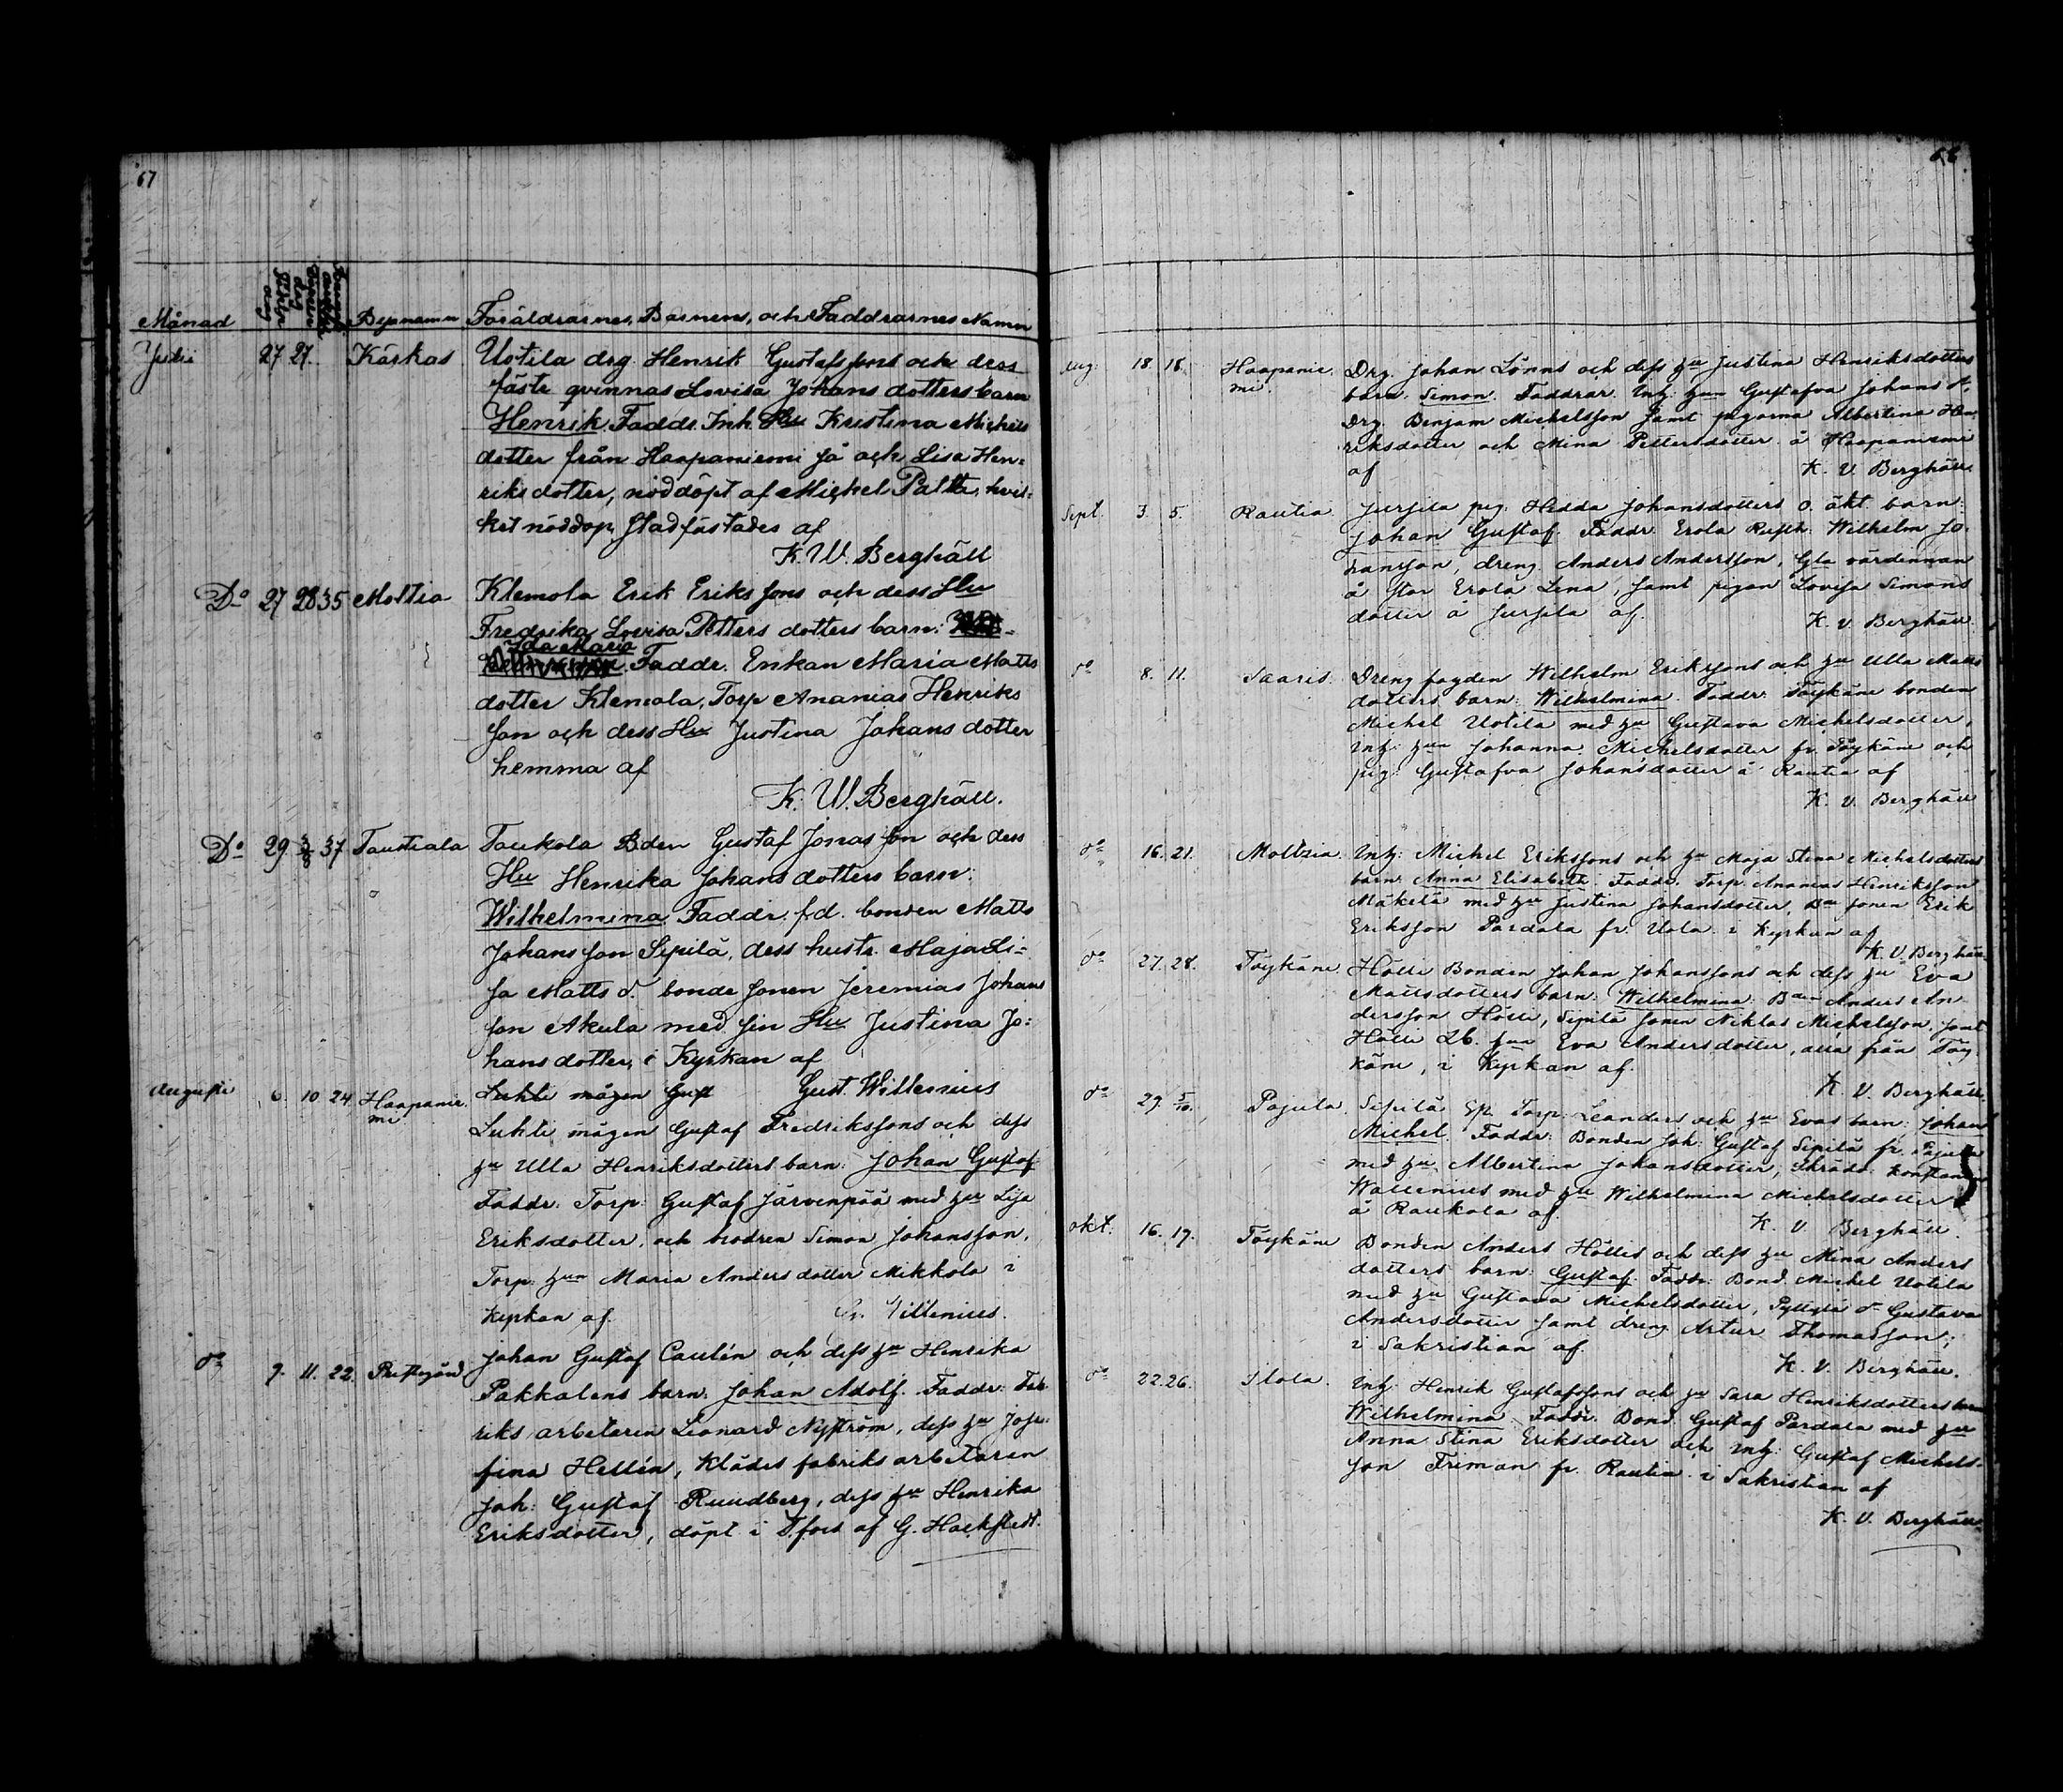 67
Månad Födelse dag Döpelse dag Bynamn Föräldrarnes, Barnens, och Faddrarnes Namn
Julii 27 27. Kärkas Uotila drg. Henrik Gustafssons och dess
fäste qvinnas Lovisa Johans dotters barn
Henrik. Faddr. Inh. Hu Kristina Michels
dotter från Haapaniemi så och Lisa Hen=
riks dotter, nöddöpt af Michel Paltta, hvil=
ket nöddop stadfästades af
K. W. Berghäll
Do 27 28 35 Moltia Klemola Erik Eriks sons och dess Hu
Fredrika Lovisa Petters dotters barn:
Ida Maria
Faddr. Enkan Maria Matts
dotter Klemola, Torp Ananias Henriks
son och dess Hu Justina Johans dotter
hemma af
K. W. Berghäll.
Do 29 3/8 37 Taustiala Taukola Bden Gustaf Jonas son och dess
Hu Henrika Johans dotters barn:
Wilhelmina Faddr. f.d. bonden Matts
Johans son Sipilä, dess hustr. Maja Li=
sa Matts d. bonde sonen Jeremias Johans
son Akula med sin Hu Justina Jo=
hans dotter, i Kyrkan af
Gust. Willenius
Augusti 6. 10. 24 Haapanie Luhti mågen Gust
mi.
Luhti mågen Gustaf Fredrikssons och dess
hu Ulla Henriksdotters barn: Johan Gustaf
Faddr. Torp: Gustaf Järvenpää med hu Lisa
Eriksdotter, och brodren Simon Johansson,
Torp: hun Maria Anders dotter Mikkola i
Kyrkan af. G. Willenius.
do 9. 11. 22. Prestgård Johan Gustaf Caulén och dess hu Henrika
Pakkalens barn: Johan Adolf. Faddr: Fab-
riks arbetaren Leonard Nyström, dess hu Jose-
fina Hellén, Klädes fabriks arbetaren
Joh: Gustaf Ruudberg, dess hu Henrika
Eriksdotter, döpt i T.fors af G. Hackstedt.
68
Aug. 18. 18. Haapanie Drg. Johan Lönns och dess hu Justina Henriksdotters
mi. barn: Simon. Faddrar. Inh: hun Gustafva Johans d,
Drg. Benjam Michelsson samt pigorna Albertina Hen-
riksdotter och Mina Pettersdotter å Haapaniemi
af K. V. Berghäll
Sept. 3. 5. Rautia. Jussila pig. Hedda Johansdotters o. äkt. barn:
Johan Gustaf. Faddr. Erola Rusth. Wilhelm Jo-
hansson, dreng Anders Andersson, Gla värdinnan
å stor Erola Lena, samt pigan Lovisa Simons
dotter å Jussila af. K. V. Berghäll.
do 8. 11. Saaris. Dreng fogden Wilhelm Erikssons och hu Ulla Matts
dotters barn: Wilhelmina. Faddr: Töykäne bonden
Michel Uotila med hu Gustava Michelsdotter,
Inh: hun Johanna Michelsdotter fr. Töykäne och
pig: Gustafva Johansdotter å Rautia af
K. V. Berghäll
do 16. 21. Moltzia. Inh: Michel Erikssons och hu Maja Stina Michelsdotters
barn: Anna Elisabeth. Faddr: Torp. Ananias Henriksson
Mäkelä med hu Justina Johansdotter, Bde sonen Erik
Eriksson Pardala fr. Uola. i Kyrkan af
K. V. Berghäll
do 27. 28. Töykäne. Hölli Bonden Johan Johanssons och dess hu Eva
Mattsdotters barn: Wilhelmina: Bden Anders An-
dersson Hölli, Sipilä sonen Niklas Michelsson, samt
Hölli Lb. hun Eva Andersdotter, alla från Töy-
käne, i Kyrkan af.
K. V. Berghäll.
do 29. 5/10. Pajula. Sipilä Torp: Leanders och hu Evas barn: Johan
Michel. Faddr: Bonden Joh: Gustaf Sipilä fr. Pajula
med hu Albertina Johansdotter, Skrädd: Konstantin
Wallenius med hu Wilhelmina Michelsdotter
å Raukola af. K. V. Berghäll.
okt. 16. 19. Töykäne Bonden Anders Höllis och dess hu Mina Anders
dotters barn: Gustaf. Faddr: Bond. Michel Uotila
med hu Gustava Michelsdotter, Pyttylä dr Gustava
Andersdotter samt dreng Artur Thomasson;
i Sakristian af.
K. V. Berghäll.
do 22. 26. Ilola. Inh: Henrik Gustafssons och hu Sara Henriksdotters barn
Wilhelmina. Faddr. Bond. Gustaf Pardala med hu
Anna Stina Eriksdotter och Inh: Gustaf Michels-
son Friman fr. Rautia i Sakristian af
K. V. Berghäll